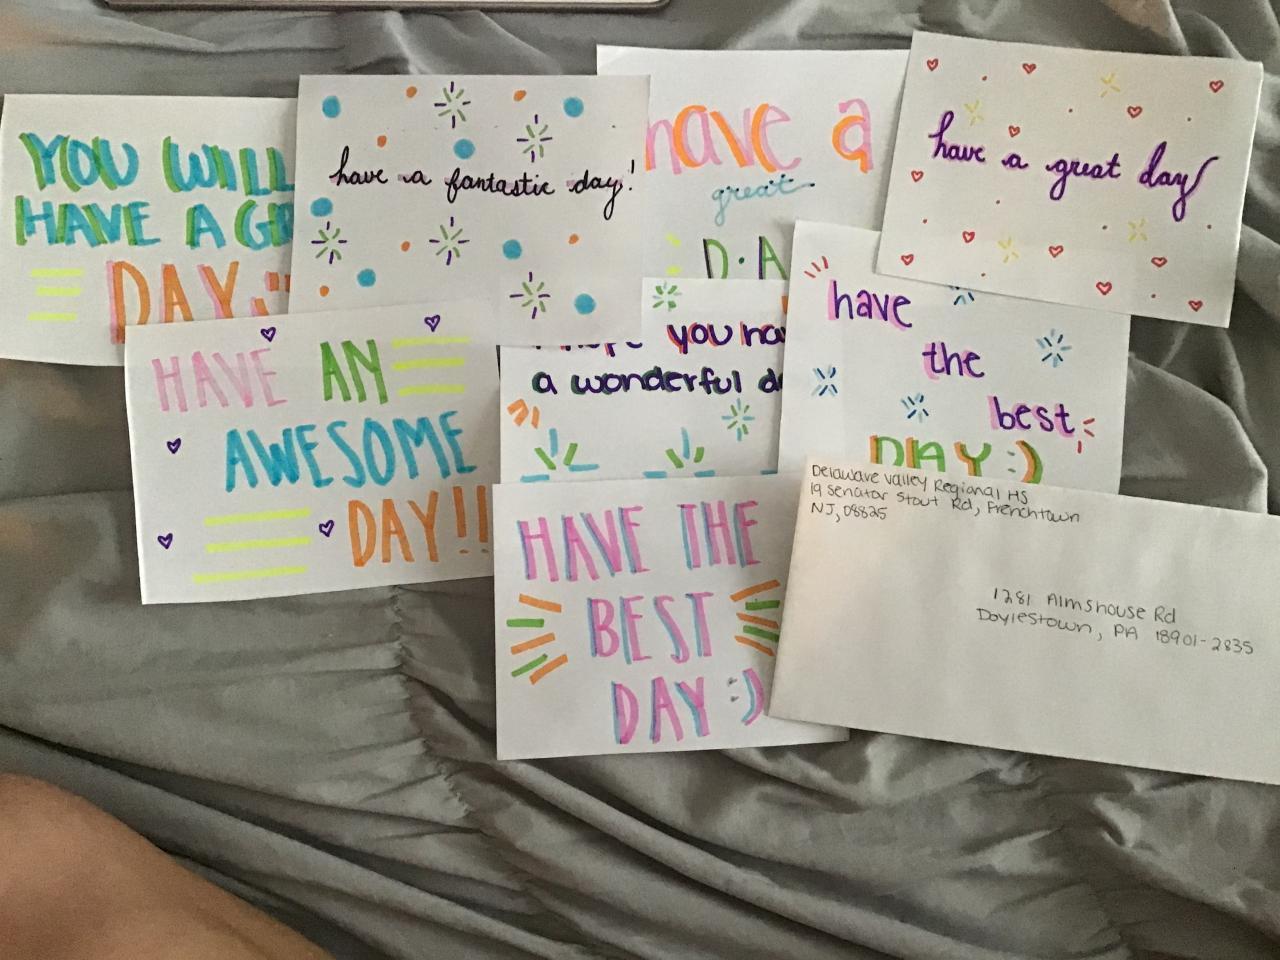 YOU WILL
HAVE A
DAY
have a fantastic day!
have a
great
D.A
have a great day
HAVE AN
AWESOME
DAY!!
you
a wonderful
have
the
best
DAY :)
HAVE THE
BEST
DAY :)
Delaware Valley Regional HS
19 Senator Stout Rd, Frenchtown
NJ, 08825
1281 Almshouse Rd
Doylestown, PA 18901-2835